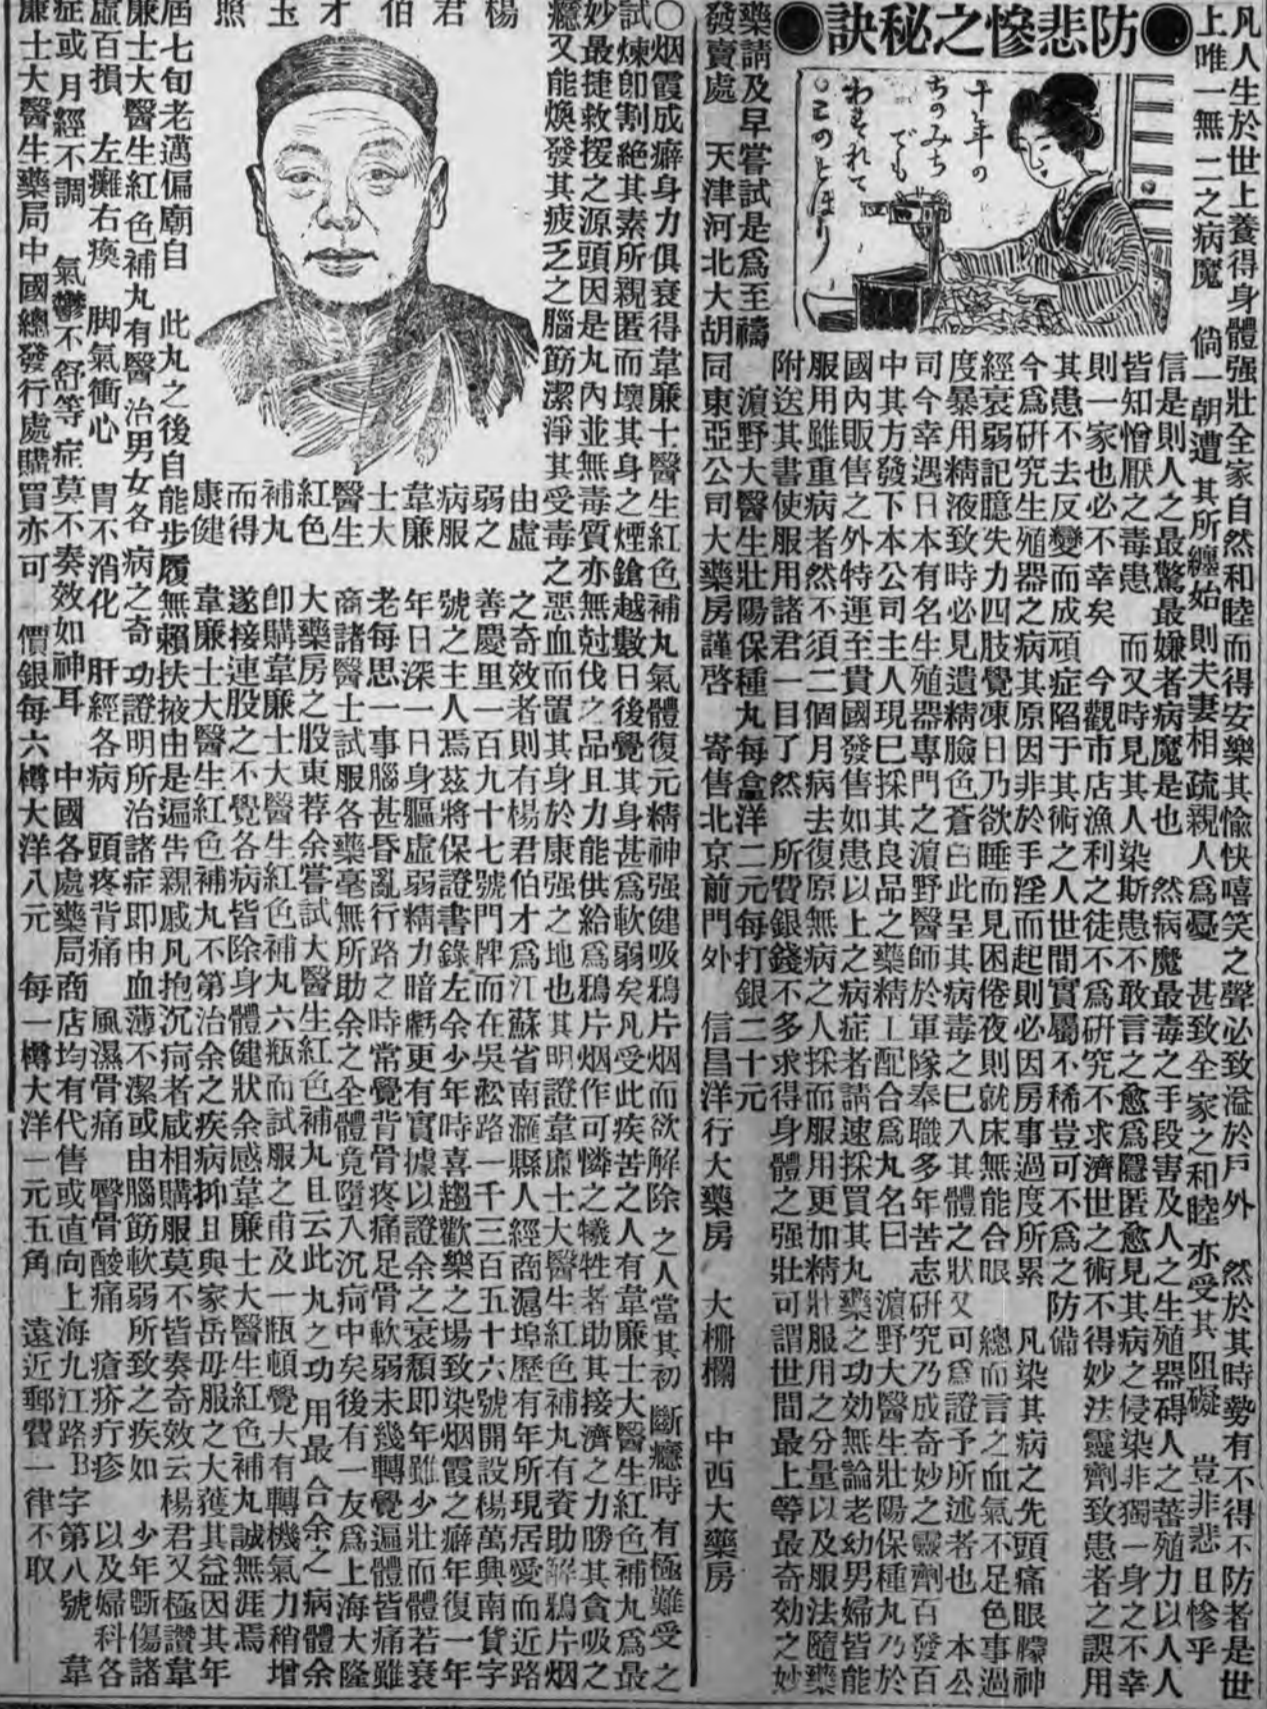 凡人生於世上養得身體强壯全家自然和睦而得安樂其愉快嘻笑之聲必致溢於戶外　然於其時勢有不得不防者是世
上唯一無二之病魔　倘一朝遭其所纏始則夫妻相疏親人爲憂　甚致全家之和睦亦受其阻礙　豈非悲且慘乎
●防悲慘之秘訣●
千年の
ちのみち
でも
わすれて
信是則人之最驚最嫌者病魔是也　然病魔最毒之手段害及人之生殖器碍人之蕃殖力以人人
皆知憎厭之毒患　而又時見其人染斯患不敢言之愈爲隱匿愈見其病之侵染非獨一身之不幸
則一家也必不幸矣　今觀市店漁利之徒不爲研究不求濟世之術不得妙法靈劑致患者之誤用
其患不去反變而成頑症陷于其術之人世間實屬不稀豈可不爲之防備
今爲研究生殖器之病其原因非於手淫而起則必因房事過度所累　凡染其病之先頭痛眼矇神
經衰弱記臆失力四肢覺凍日乃欲睡而見困倦夜則就床無能合眼　總而言之血氣不足色事過
度暴用精液致時必見遺精臉色蒼白此呈其病毒之已入其體之狀又可爲證予所述者也　本公
司今幸遇日本有名生殖器專門之濵野醫師於軍隊奉職多年苦志研究乃成奇妙之靈劑百發百
中其方發下本公司主人現已採其良品之藥精工配合爲丸名曰　濵野大醫生壯陽保種丸乃於
國內販售之外特運至貴國發售如患以上之病症者請速採買其丸藥之功効無論老幼男婦皆能
服用雖重病者然不須二個月病去復原無病之人採而服用更加精壯服用之分量以及服法隨藥
附送其書使服用諸君一目了然　所費銀錢不多求得身體之强壯可謂世間最上等最奇効之妙
藥請及早嘗試是爲至禱　濵野大醫生壯陽保種丸每盒洋二元每打銀二十元
發賣處　天津河北大胡同東亞公司大藥房謹啓　寄售北京前門外　信昌洋行大藥房　大柵欄　中西大藥房
○烟霞成癖身力俱衰得韋廉士醫生紅色補丸氣體復元精神强健吸鴉片烟而欲解除之人當其初斷癮時有極難受之
試煉卽割絕其素所親匿而壞其身之煙鎗越數日後覺其身甚爲軟弱矣凡受此疾苦之人有韋廉士大醫生紅色補丸爲最
妙最捷救援之源頭因是丸內並無毒質亦無尅伐之品且力能供給爲鴉片烟作可憐之犧牲者助其接濟之力勝其貪吸之
癮又能煥發其疲乏之腦筋潔淨其受毒之惡血而置其身於康强之地也其明證韋廉士大醫生紅色補丸有資助解鴉片烟
楊君伯才玉照
由虛弱之病服韋廉士大醫生紅色補丸而得康健
之奇效者則有楊君伯才爲江蘇省南滙縣人經商滬埠歷有年所現居愛而近路
善慶里一百九十七號門牌而在吳淞路一千三百五十六號開設楊萬興南貨字
號之主人焉茲將保證書錄左余少年時喜趨歡樂之塲致染烟霞之癖年復一年
年日深一日身軀虛弱精力暗虧更有實據以證余之衰頹卽年雖少壯而體若衰
老每思一事腦甚昏亂行路之時常覺背骨疼痛足骨軟弱未幾轉覺遍體皆痛雖
商諸醫士試服各藥毫無所助余之全體竟墮入沉疴中矣後有一友爲上海大隆
大藥房之股東荐余嘗試大醫生紅色補丸且云此丸之功用最合余之病體余
卽購韋廉士大醫生紅色補丸六瓶而試服之甫及一瓶頓覺大有轉機氣力稍增
遂接連股之不覺各病皆除身體健狀余感韋廉士大醫生紅色補丸誠無涯焉
韋廉士大醫生紅色補丸不第治余之疾病抑且與家岳毋服之大獲其益因其年
屆七旬老邁偏廟自　此丸之後自能步履無賴扶掖由是遍告親戚凡抱沉疴者咸相購服莫不皆奏奇效云楊君又極讚韋
廉士大醫生紅色補丸有醫治男女各病之奇功證明所治諸症即由血薄不潔或由腦筋軟弱所致之疾如　少年斲傷諸
虛百損　左癱右瘓　脚氣衝心　胃不消化　肝經各病　頭疼背痛　風濕骨痛　臀骨酸痛　瘡疥疔疹　以及婦科各
症或月經不調　氣鬱不舒等症莫不奏效如神耳　中國各處藥局商店均有代售或直向上海九江路B字第八號　韋
廉士大醫生藥局中國總發行處購買亦可　價銀每六樽大洋八元　每一樽大洋一元五角　遠近郵費一律不取